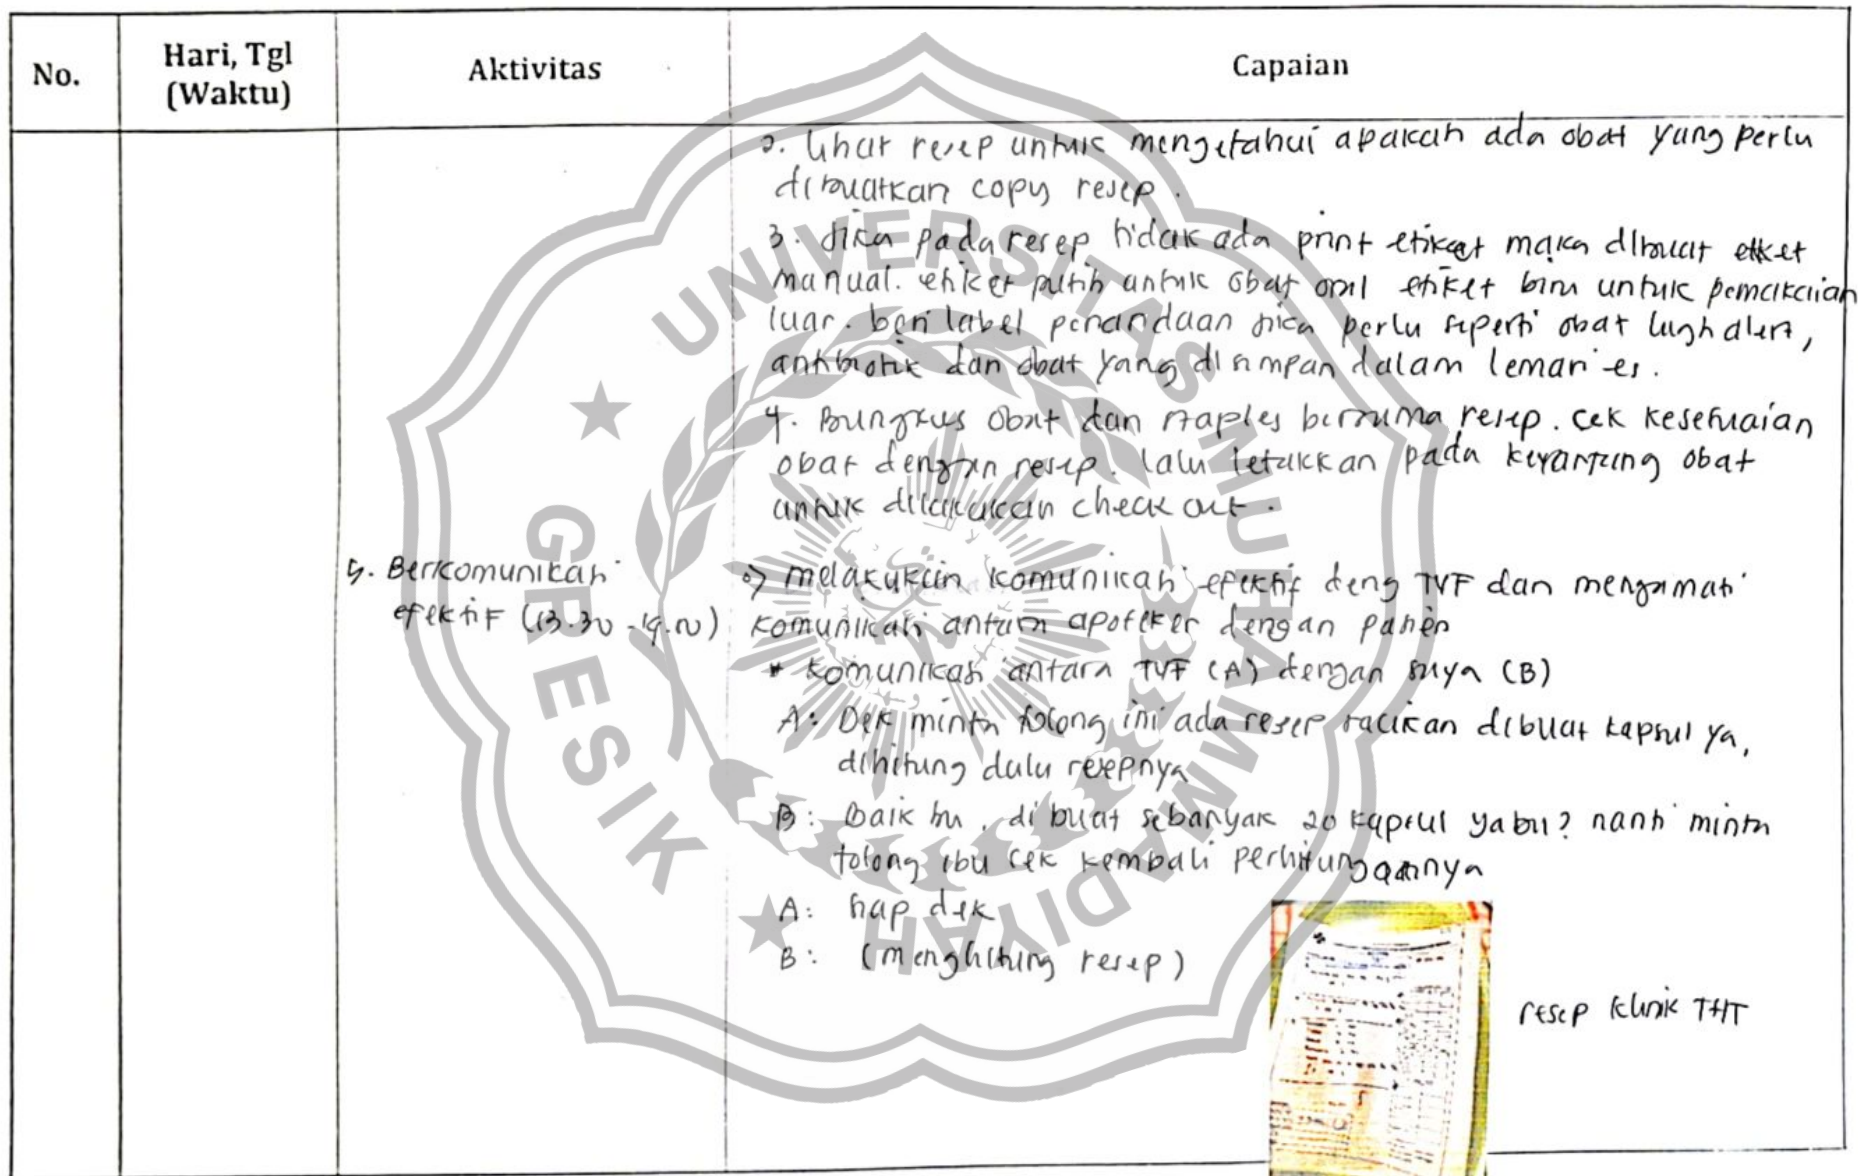 No.
Hari, Tgl
(Waktu)
Aktivitas
Capaian
2. Lihat resep untuk mengetahui apakah ada obat yang perlu
dibuatkan copy resep.
3. Jika pada resep tidak ada print etiket maka dibuat etiket
manual. etiket putih untuk obat oral etiket biru untuk pemakaian
luar. beri label penandaan jika perlu seperti obat high alert,
antibiotik dan obat yang disimpan dalam lemari es.
4. Bungkus obat dan staples bersama resep. cek kesesuaian
obat dengan resep. lalu letakkan pada keranjang obat
untuk dilakukan check out.
5. Berkomunikasi
efektif (13.30 - 19.00)
melakukan komunikasi efektif deng TVF dan mengamati
komunikasi antara apoteker dengan pasien
* komunikasi antara TVF (A) dengan saya (B)
A: Dek minta tolong ini ada resep racikan dibuat kapsul ya,
dihitung dulu resepnya
B: baik bu, dibuat sebanyak 20 kapsul ya bu? nanti minta
tolong ibu cek kembali perhitungannya
A: siap dek
B: (menghitung resep)
resep klinik THT
UNIVERSITAS MUHAMMADIYAH
GRESIK